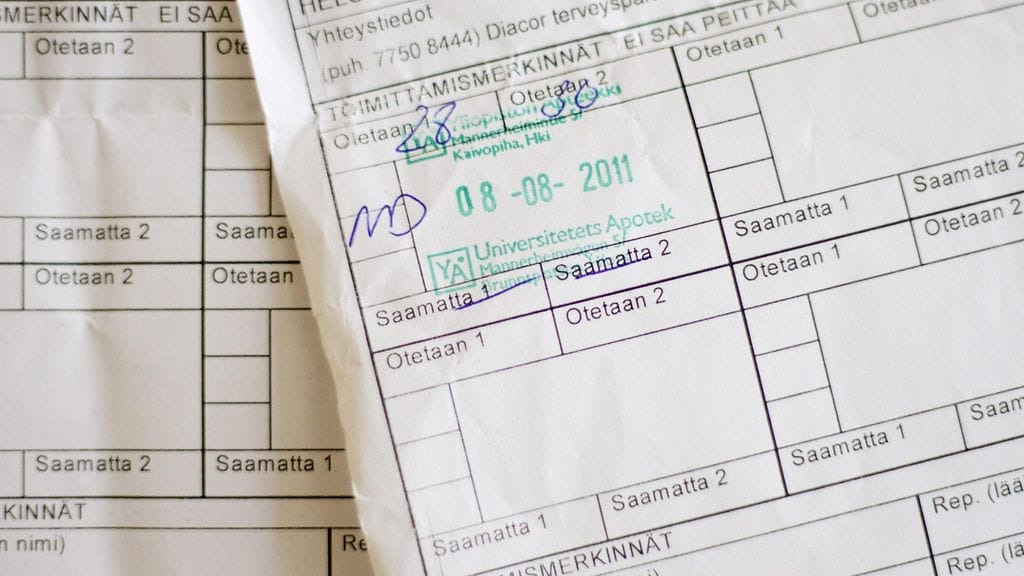 SMERKINNÄT EI SAA
Otetaan 2
Ote
Saamatta 2
Saama
Otetaan 2
Otetaan
Saamatta 2
Saamatta 1
KINNÄT
n nimi)
Re
HEL
Yhteystiedot
(puh. 7750 8444) Diacor terveyspa
TOIMITTAMISMERKINNÄT EI SAA PEITTÄÄ
Otetaan
28
Otetaan 2
30
Otetaan 1
Otetaan
YA Yliopiston
Mannerheimintie 5
Kaivopiha, Hki
08 -08- 2011
MD
YA Universitetets Apotek
Mannerheimvägen 5
Saamatta 1
Saamatta 2
Saamatta 1
Saamatta 2
Otetaan 1
Otetaan 2
Otetaan 1
Otetaan 2
Saamatta 1
Saamatta 2
Saamatta 1
Saam
SMERKINNÄT
Rep. (lää
Rep. (lä